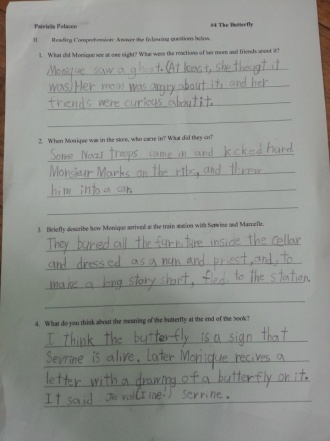 Patricia Polacco #4 The Butterfly
II. Reading Comprehension: Answer the following questions below.
1. What did Monique see at one night? What were the reactions of her mom and friends about it?
Monique saw a ghost. (At least, she thougt it
was) Her mom was angry about it, and her
friends were curious about it.
2. When Monique was in the store, who came in? What did they do?
Some Nazi troops came in and kicked hard
Monsiur Marks on the ribs, and threw
him into a car.
3. Briefly describe how Monique arrived at the train station with Sevrine and Marcelle.
They buried all the furniture inside the cellar
and dressed as a nun and priest, and, to
make a long story short, fled to the station.
4. What do you think about the meaning of the butterfly at the end of the book?
I think the butterfly is a sign that
Sevrine is alive. Later Monique recives a
letter with a drawing of a butterfly on it.
It said Je vol (I live!) Serrine.